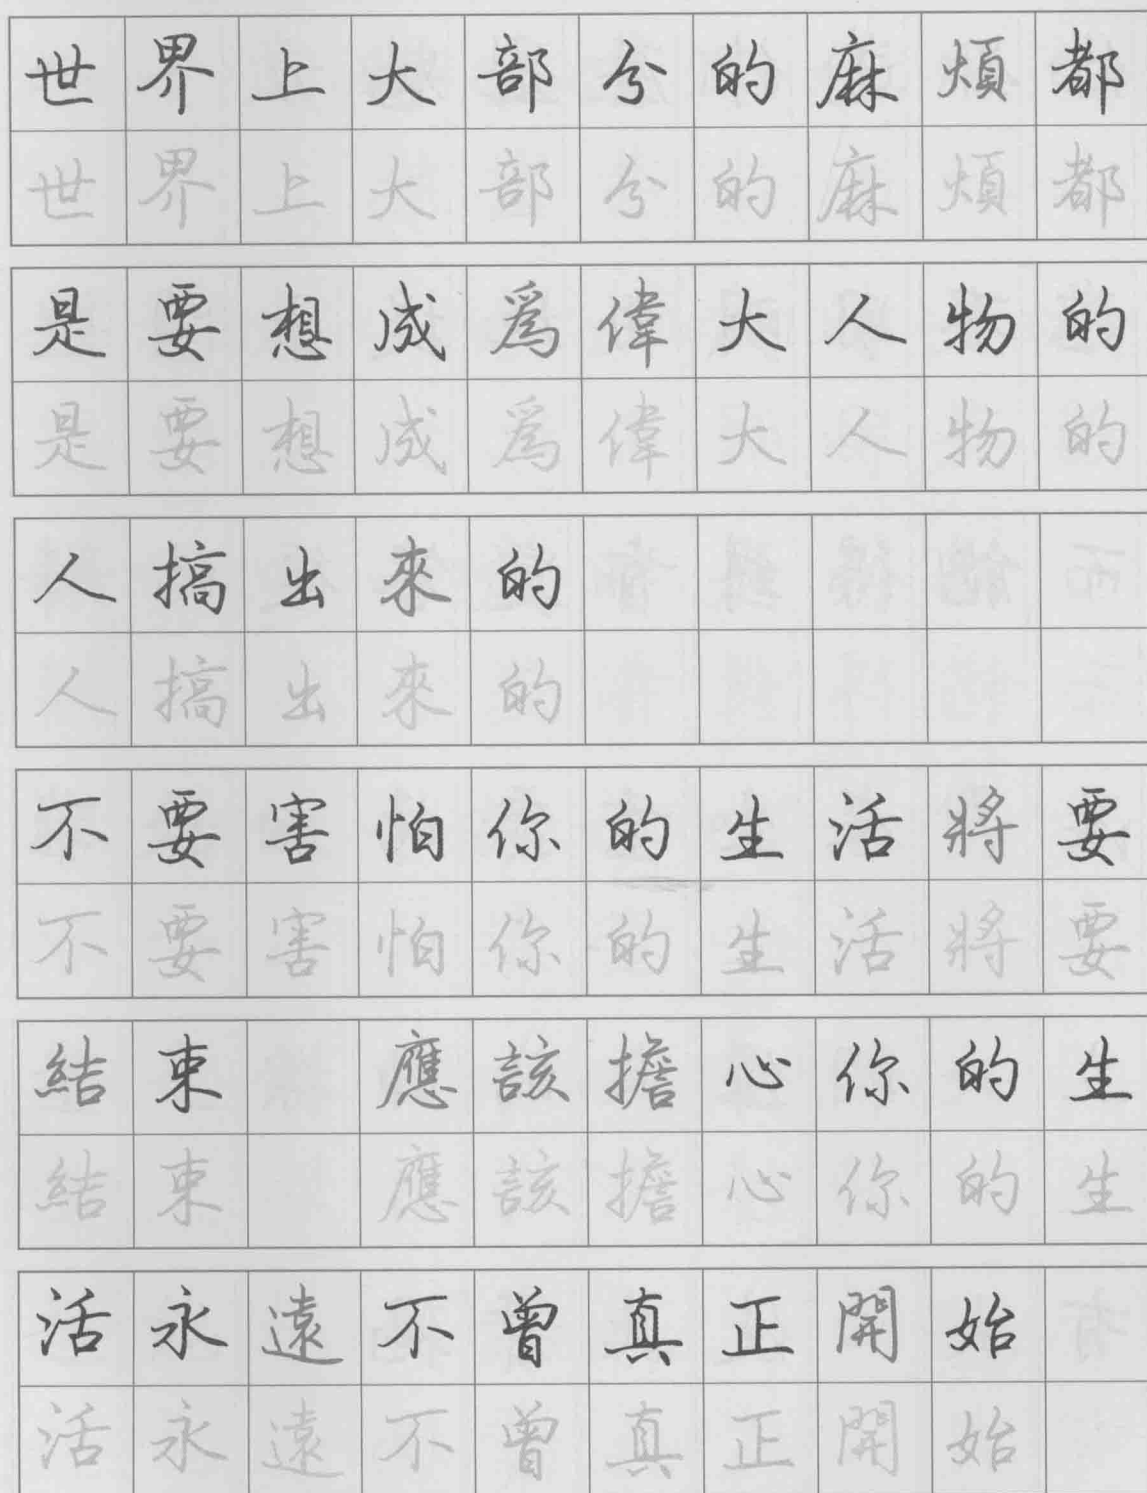 世界上大部分的麻煩都
世界上大部分的麻煩都
是要想成爲偉大人物的
是要想成爲偉大人物的
人搞出來的
人搞出來的
不要害怕你的生活將要
不要害怕你的生活將要
結束 應該擔心你的生
結束 應該擔心你的生
活永遠不曾真正開始
活永遠不曾真正開始